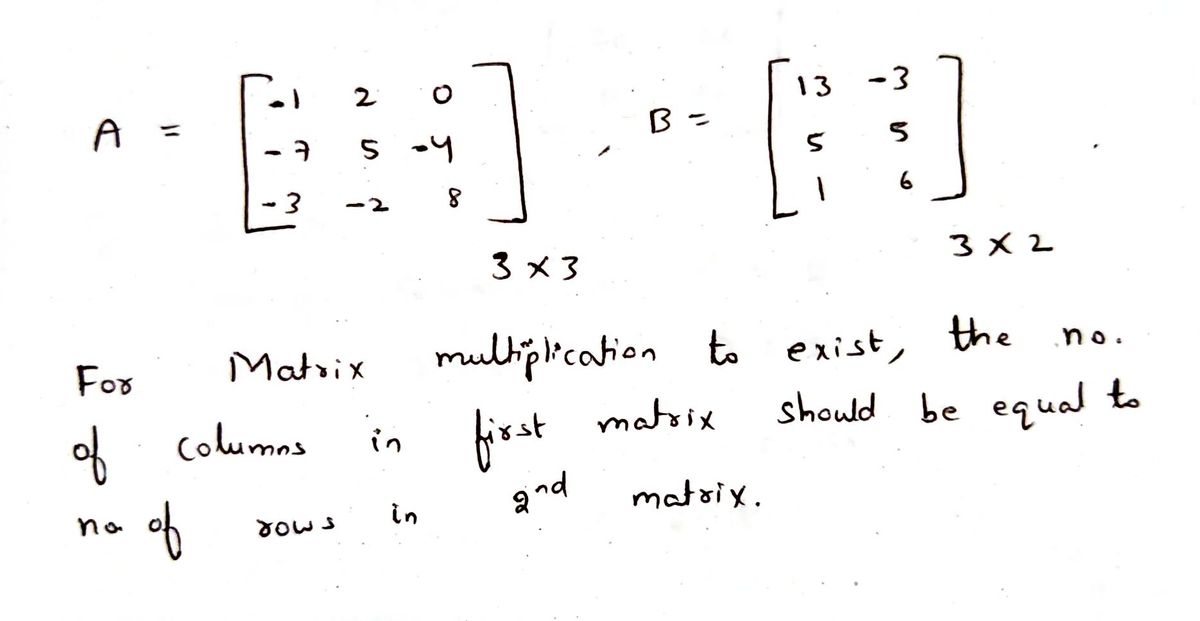 A = [ -1 2 0 , B = [ 13 -3
-7 5 -4 5 5
-3 -2 8 ] 1 6 ]
3 × 3 3 × 2
For Matrix multiplication to exist, the no.
of columns in first matrix should be equal to
no of rows in 2nd matrix.